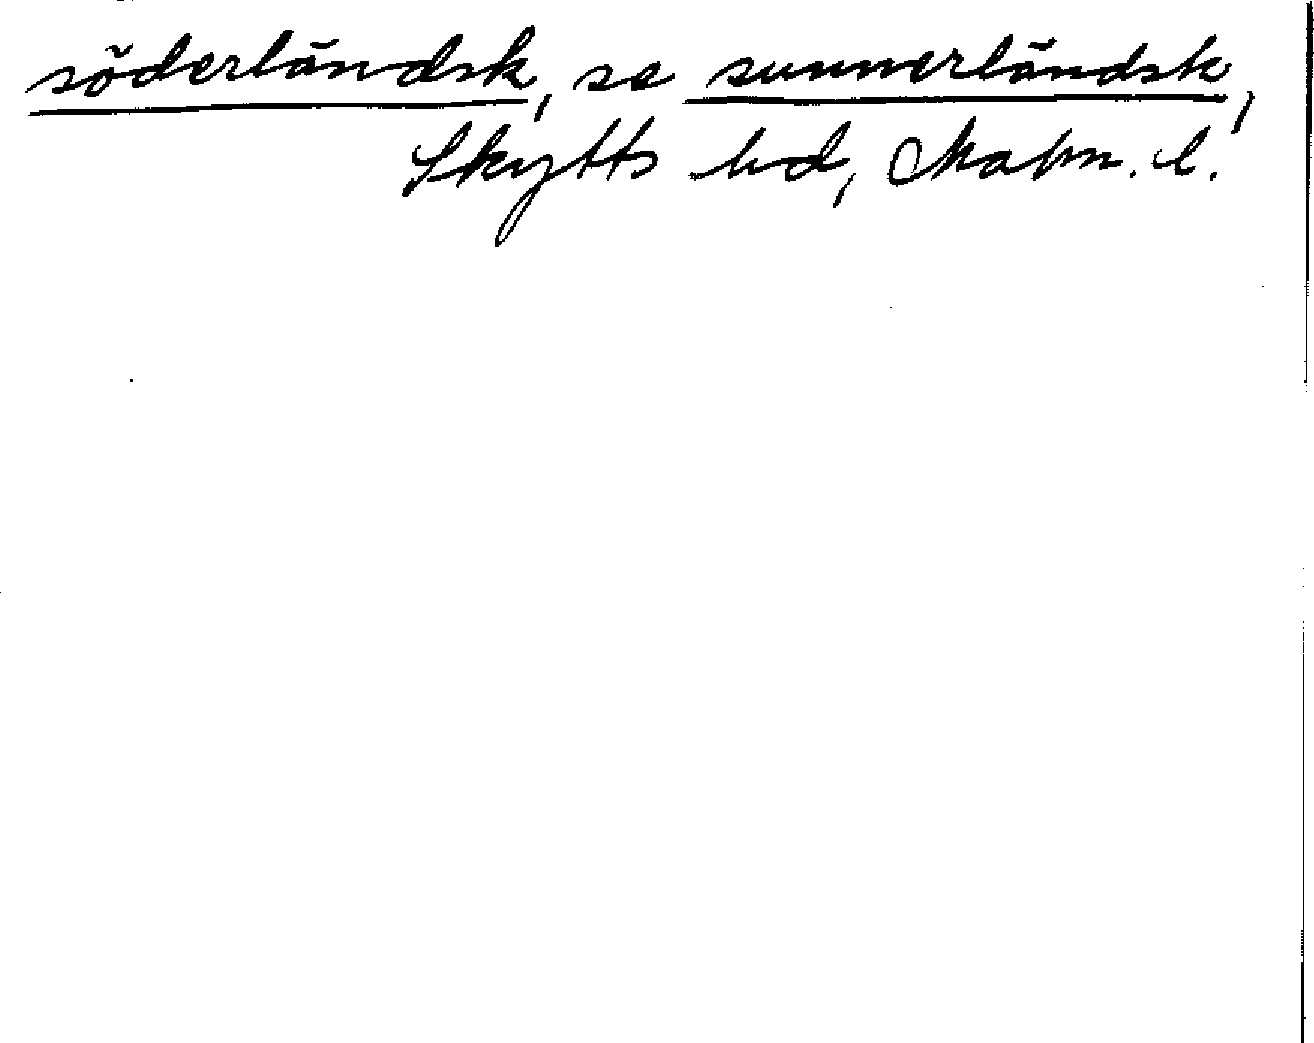 söderländsk, se sunnerländsk,
Skytts hd, Malm. l.